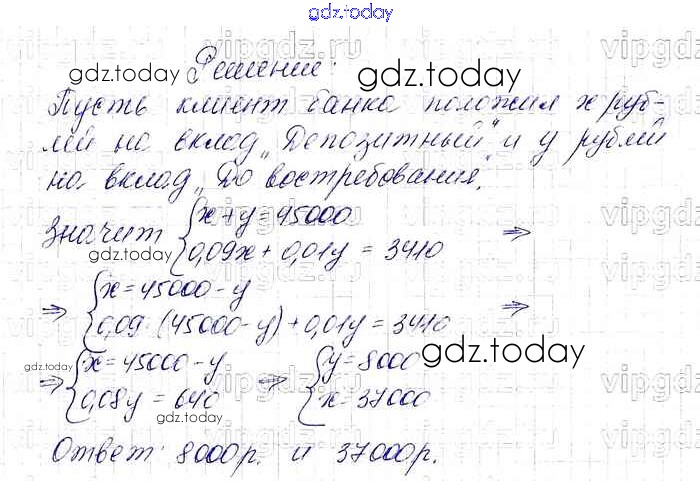 gdz.today
Решение:
gdz.today
gdz.today
Пусть клиент банка положил х руб-
лей на вклад „Депозитный" и у рублей
на вклад „До востребования".
Значит { x+y=45000
0,09x+0,01y = 3410 ⇒
gdz.today
⇒ { x=45000-y
0,09·(45000-y)+0,01y=3410 ⇒
gdz.today
gdz.today
⇒ { x=45000-y ⇒ { y=8000
0,08y=640 x=37000
gdz.today
Ответ: 8000р. и 37000р.
vipgdz.ru